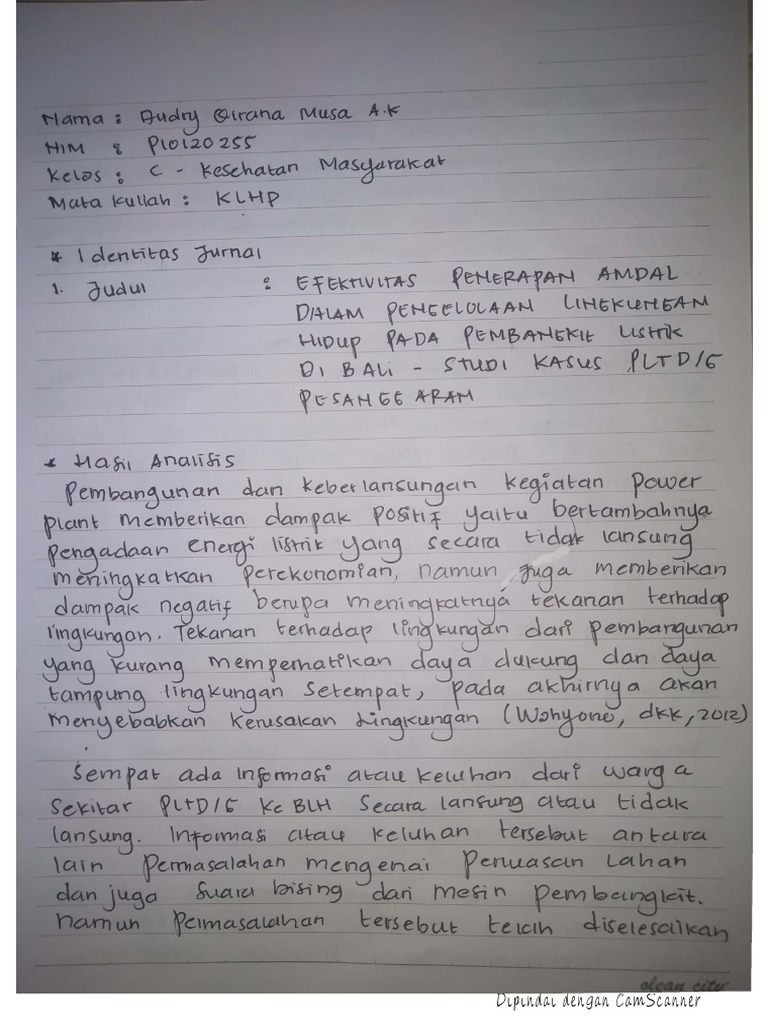 Nama : Audry Girana Musa A.K
NIM : P10120255
Kelas : C - Kesehatan Masyarakat
Mata Kuliah : KLHP
* Identitas Jurnal
1. Judul : EFEKTIVITAS PENERAPAN AMDAL
DALAM PENGELOLAAN LINGKUNGAN
HIDUP PADA PEMBANGKIT LISTRIK
DI BALI - STUDI KASUS PLTD/G
PESANGGARAN
* Hasil Analisis
Pembangunan dan keberlansungan kegiatan power
plant memberikan dampak positif yaitu bertambahnya
pengadaan energi listrik yang secara tidak lansung
meningkatkan perekonomian, namun juga memberikan
dampak negatif berupa meningkatnya tekanan terhadap
lingkungan. Tekanan terhadap lingkungan dari pembangunan
yang kurang memperhatikan daya dukung dan daya
tampung lingkungan setempat, pada akhirnya akan
menyebabkan kerusakan lingkungan (Wahyono, dkk, 2012)
Sempat ada informasi atau keluhan dari warga
sekitar PLTD/G ke BLH secara lansung atau tidak
lansung. Informasi atau keluhan tersebut antara
lain permasalahan mengenai perluasan lahan
dan juga suara bising dari mesin pembangkit.
namun permasalahan tersebut telah diselesaikan
olean city
Dipindai dengan CamScanner